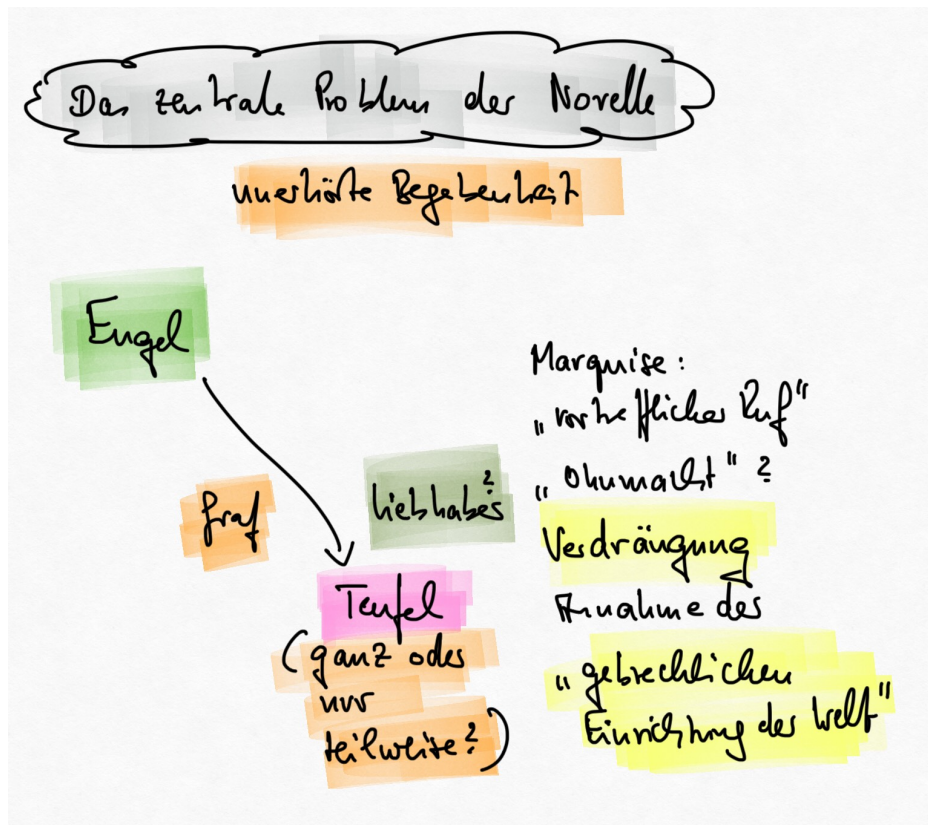 Das zentrale Problem der Novelle
unerhörte Begebenheit
Engel
Graf
Liebhaber?
Teufel
(ganz oder
nur
teilweise?)
Marquise:
„vortrefflicher Ruf"
„Ohnmacht" ?
Verdrängung
Annahme der
„gebrechlichen
Einrichtung der Welt"